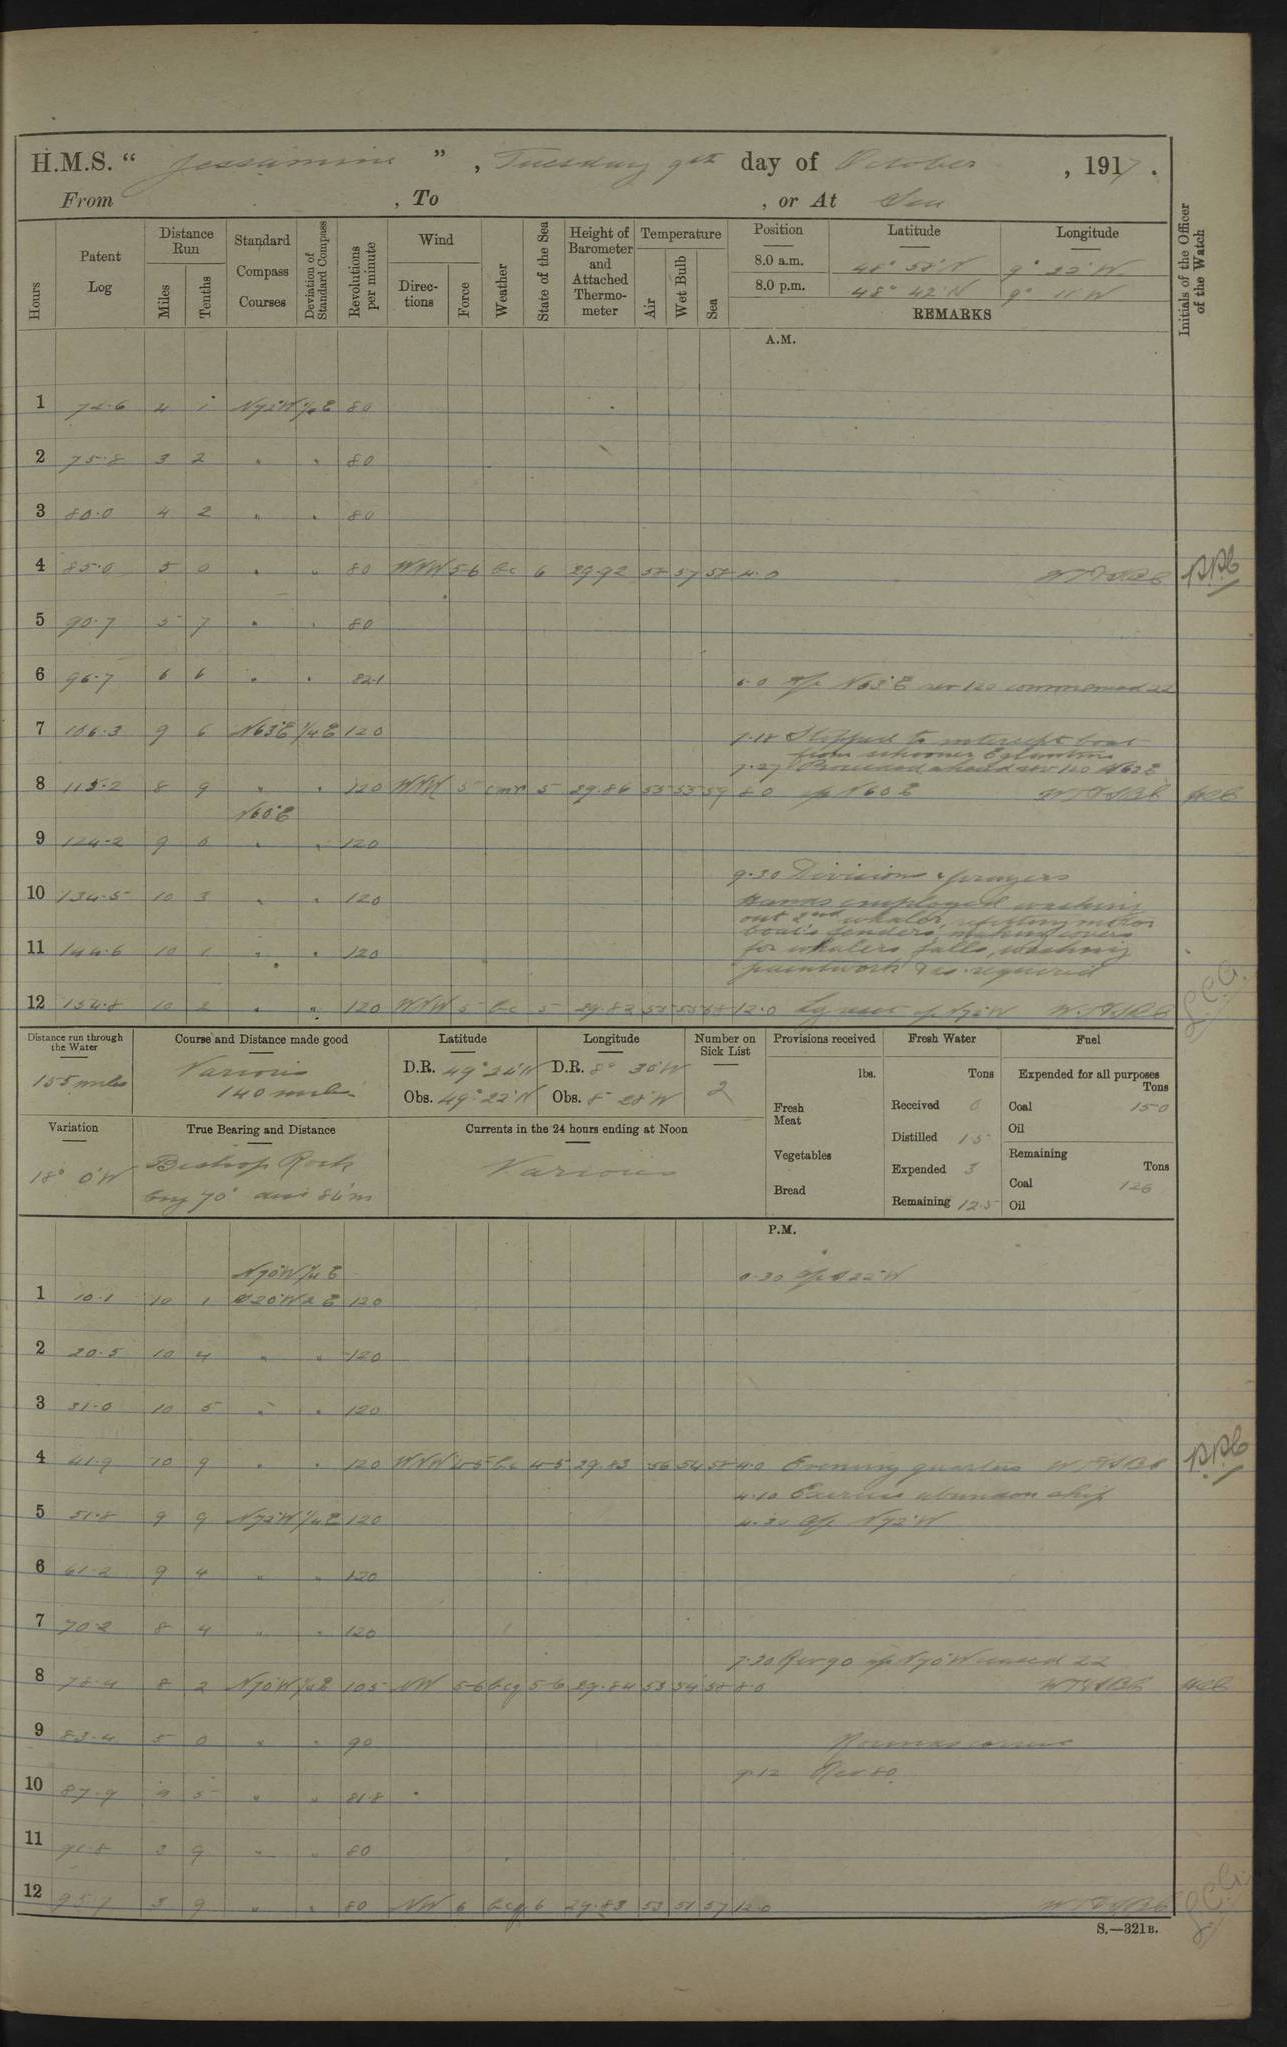 H.M.S. " Jessamine ", Tuesday 9th day of October, 1917.
From , To , or At Sea
Hours Patent Log Distance Run Miles Tenths Standard Compass Courses Deviation of Standard Compass Revolutions per minute Wind Directions Force Weather State of the Sea Height of Barometer and Attached Thermometer Temperature Air Wet Bulb Sea Position Latitude Longitude Initials of the Officer of the Watch
8.0 a.m. 48° 58' N 9° 22' W
8.0 p.m. 48° 42' N 9° 11' W
REMARKS
A.M.
1 4 1 N72°W 1/4 E 80
2 75.8 3 2 " " 80
3 80.0 4 2 " " 80
4 85.0 5 0 " " 80 WNW 5-6 bc 6 29.92 58 57 58 4.0
5 90.7 5 7 " " 80
6 96.7 6 6 " " 82.1 6.0 a/c N63°E rev 120 commenced zz
7 106.3 9 6 N63°E 1/4 E 120 7.18 Stopped to intercept boat
from schooner
7.27 Proceeded ahead rev 120 N63°E
8 115.2 8 9 " " 120 WNW 5 cmr 5 29.86 55 55 59 8.0 a/c N60°E
N60°E
9 124.2 9 0 " " 120
9.30 Divisions & prayers
10 134.5 10 3 " " 120 Hands employed washing
out 2nd whaler, refitting motor
boat's fenders, making covers
11 144.6 10 1 " " 120 for whalers falls, washing
paintwork & as required
12 154.8 10 2 " " 120 WNW 5 bc 5 29.82 55 53 58 12.0
Distance run through the Water Course and Distance made good Latitude Longitude Number on Sick List Provisions received Fresh Water Fuel
155 miles Various 140 miles D.R. 49° 24' N D.R. 8° 30' W 2 lbs. Tons Expended for all purposes Tons
Obs. 49° 22' N Obs. 8° 28' W Fresh Meat Received 0 Coal 15.0
Oil
Variation True Bearing and Distance Currents in the 24 hours ending at Noon Distilled 1.5 Remaining Tons
18° 0' W Bishop Rock Various Vegetables Expended 3 Coal 126
brg 70° dist 86 m Bread Remaining 12.5 Oil
P.M.
N70°W 1/4 E 0.30 a/c S22°W
1 10.1 10 1 S20°W 2 E 120
2 20.5 10 4 " " 120
3 31.0 10 5 " " 120
4 41.9 10 9 " " 120 WNW 4-5 bc 4-5 29.83 56 54 58 4.0 Evening quarters
4.10 Exercise abandon ship
5 51.8 9 9 N72°W 1/4 E 120 4.30 a/c N72°W
6 61.2 9 4 " " 120
7 70.2 8 4 " " 120
7.30 Rev 90 a/c N70°W ceased zz
8 78.4 8 2 N70°W 1/4 E 105 NW 5-6 bcq 5-6 29.84 53 54 58 8.0
9 83.4 5 0 " " 90
9.12 Rev 80
10 87.9 4 5 " " 81.8
11 91.8 3 9 " " 80
12 95.7 3 9 " " 80 NW 6 bcq 6 29.83 53 51 57 12.0
S.—321B.